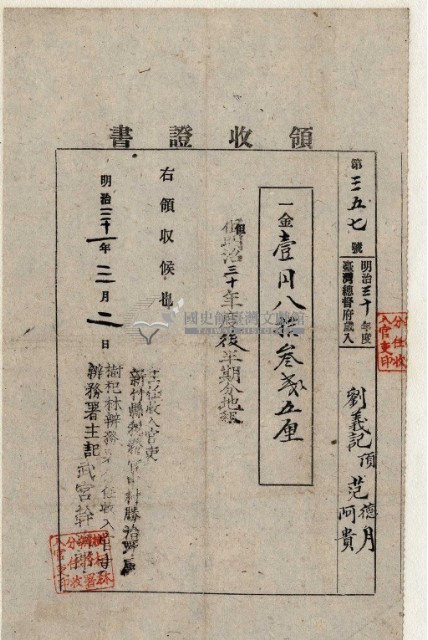 領收證書
第三五七號
明治三十年度
臺灣總督府歲入
劉義記頂
范德月
阿貴
一金壹円八拾叁戔五厘
但明治三十年度後半期分地租
右領収候也
明治三十一年三月二日
主任收入官吏
新竹縣
樹杞林辦務署
辦務署主記武宮
分任收
入官吏印
國史館臺灣文獻館